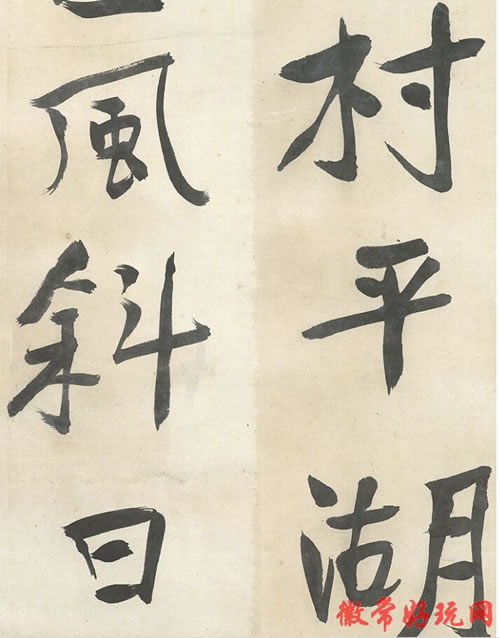 村平湖
風斜日
徽常好玩网